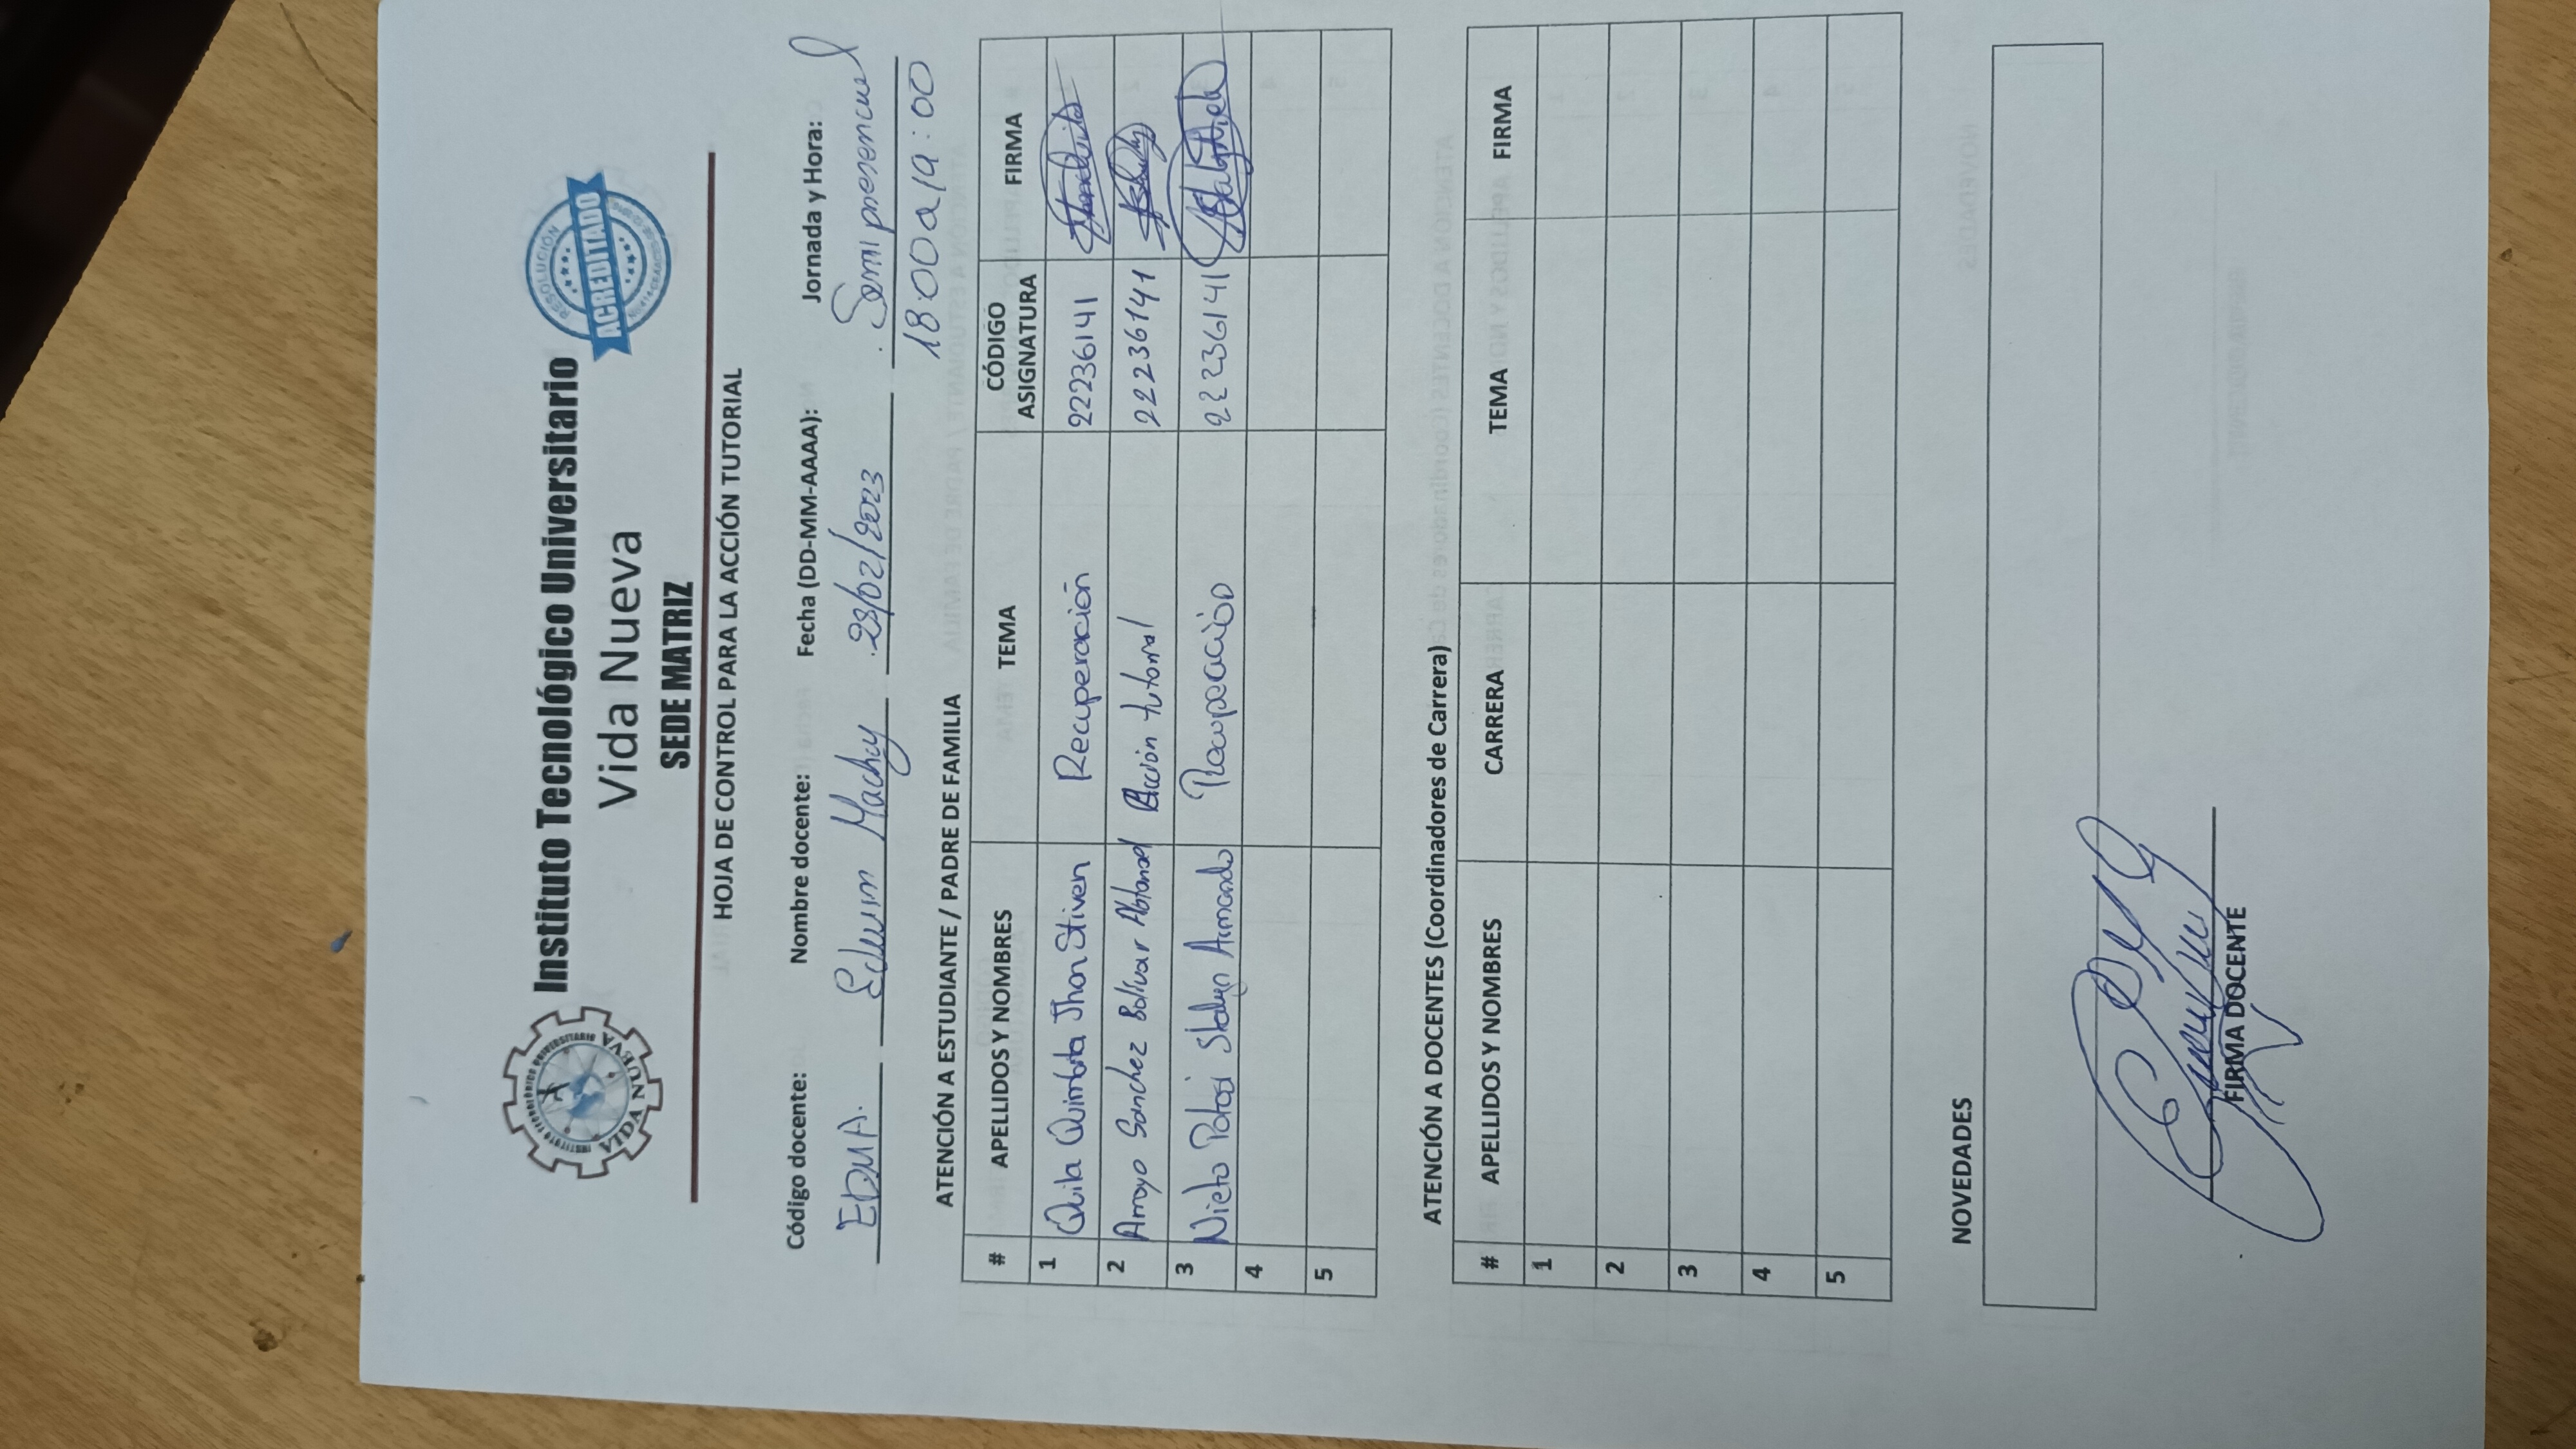 INSTITUTO TECNOLÓGICO UNIVERSITARIO
VIDA NUEVA
Instituto Tecnológico Universitario
Vida Nueva
SEDE MATRIZ
RESOLUCIÓN
ACREDITADO
HOJA DE CONTROL PARA LA ACCIÓN TUTORIAL
Código docente: Nombre docente: Fecha (DD-MM-AAAA): Jornada y Hora:
EDMA. Edwin Machay 28/02/2023 Semi presencial
18:00 a 19:00
ATENCIÓN A ESTUDIANTE / PADRE DE FAMILIA
# APELLIDOS Y NOMBRES TEMA CÓDIGO ASIGNATURA FIRMA
1 Quila Quimbita Jhon Stiven Recuperación 22236141
2 Arroyo Sanchez Bolívar Acción tutorial 22236141
3 Nieto Potosi Stalyn Armando Recuperación 22236141
4
5
ATENCIÓN A DOCENTES (Coordinadores de Carrera)
# APELLIDOS Y NOMBRES CARRERA TEMA FIRMA
1
2
3
4
5
NOVEDADES
FIRMA DOCENTE